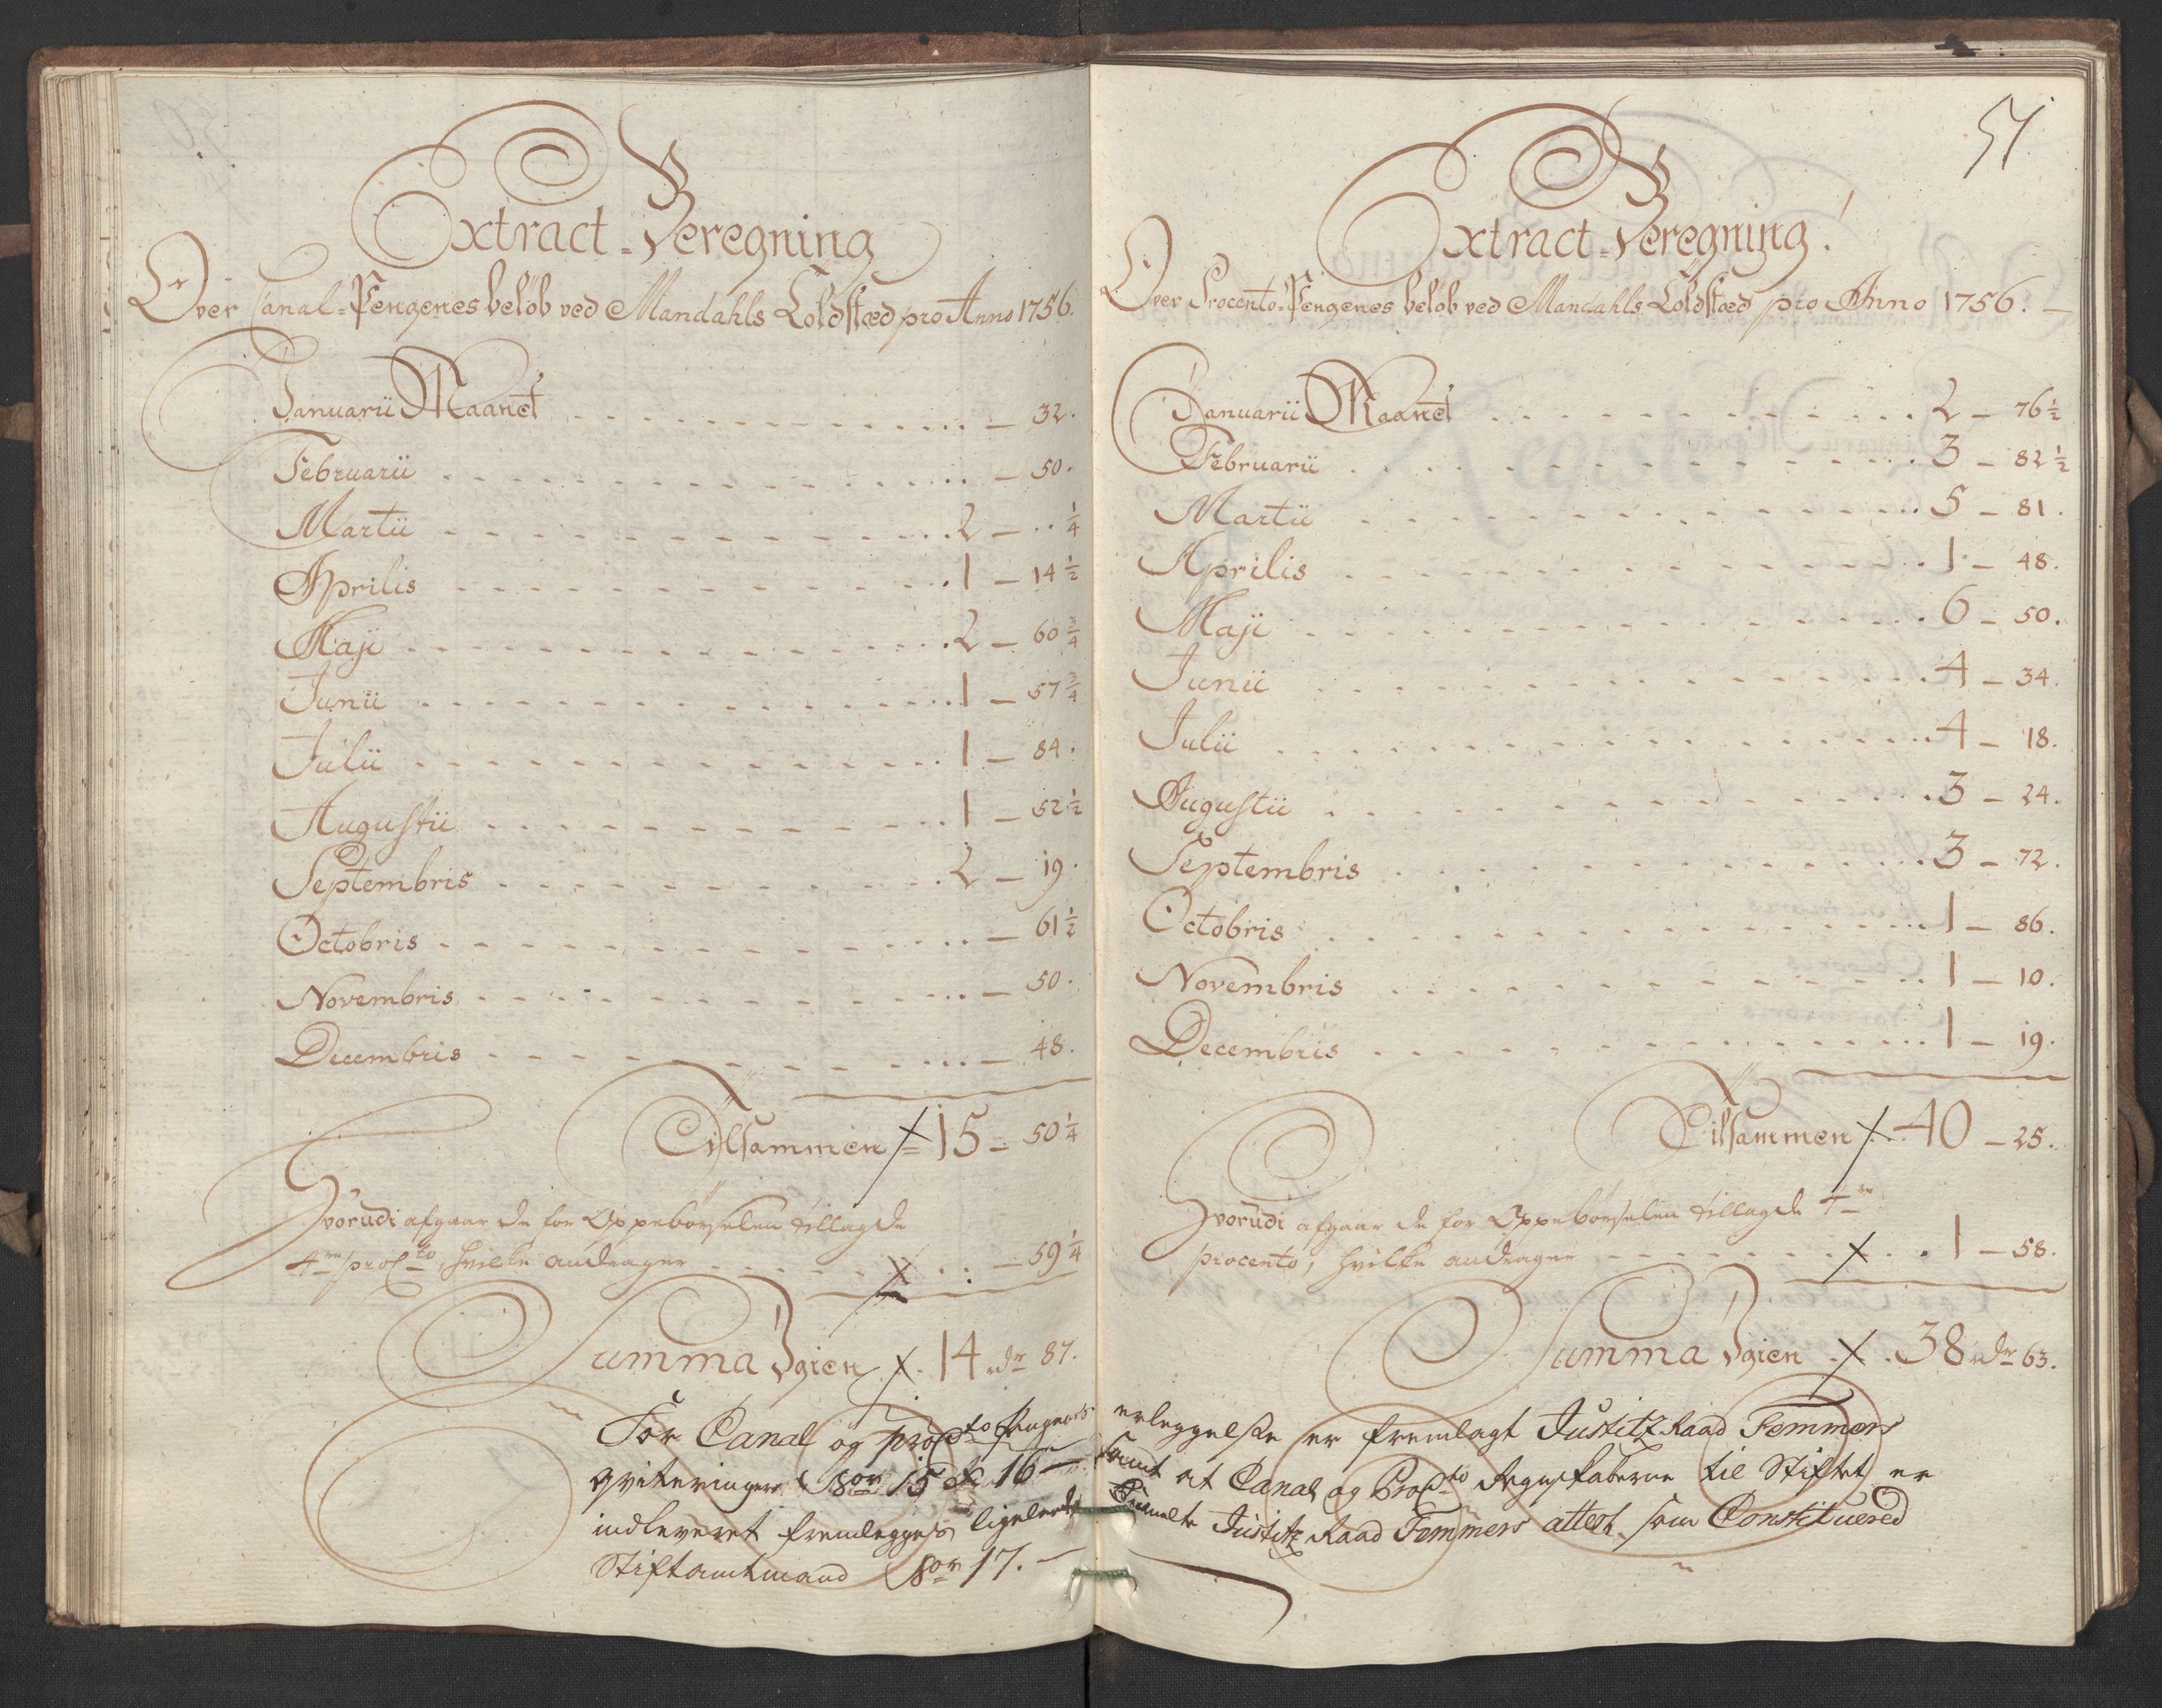 Extract-Beregning
Over Canal-Pengenes beløb ved Mandahls Toldstæd pro Anno 1756.
Januarii Maanet . . . . . . . . — 32.
Februarii . . . . . . . . — 50.
Martii . . . . . . . . 2 — .. ¼
Aprilis . . . . . . . . 1 — 14 ½
Maji . . . . . . . . 2 — 60 ¾
Junii . . . . . . . . 1 — 57 ¾
Julii . . . . . . . . 1 — 84.
Augustii . . . . . . . . 1 — 52 ½
Septembris . . . . . . . . 2 — 19.
Octobris . . . . . . . . — 61 ½
Novembris . . . . . . . . — 50.
Decembris . . . . . . . . — 48.
Tilsammen 15 — 50 ¼
Hvorudi afgaar de for Oppebørselen tillagde
4re proCto, hvilke andrager . . . . . — 59 ¼
Summa Igien 14 rdr 87.
For Canal og proCto pengenes
qviteringer sor 15 & 16 —
indleveret fremlegges ligeledes
Stiftamtmand sor 17. —
51
Extract-Beregning
Over Procento-Pengenes beløb ved Mandahls Toldstæd pro Anno 1756. —
Januarii Maanet . . . . . . . . 2 — 76 ½
Februarii . . . . . . . . 3 — 82 ½
Martii . . . . . . . . 5 — 81.
Aprilis . . . . . . . . 1 — 48.
Maji . . . . . . . . 6 — 50.
Junii . . . . . . . . 4 — 34.
Julii . . . . . . . . 4 — 18.
Augustii . . . . . . . . 3 — 24.
Septembris . . . . . . . . 3 — 72.
Octobris . . . . . . . . 1 — 86.
Novembris . . . . . . . . 1 — 10.
Decembris . . . . . . . . 1 — 19.
Tilsammen 40 — 25.
Hvorudi afgaar de for Oppebørselen tillagde 4re
procento, hvilke andrager . . . . . 1 — 58.
Summa Igien 38 rdr 63.
erleggelse er fremlagt Justitz Raad Femmers
samt at Canal og ProCto Regnskaberne til Stiftet er
Justitz Raad Femmers attest som Constituered